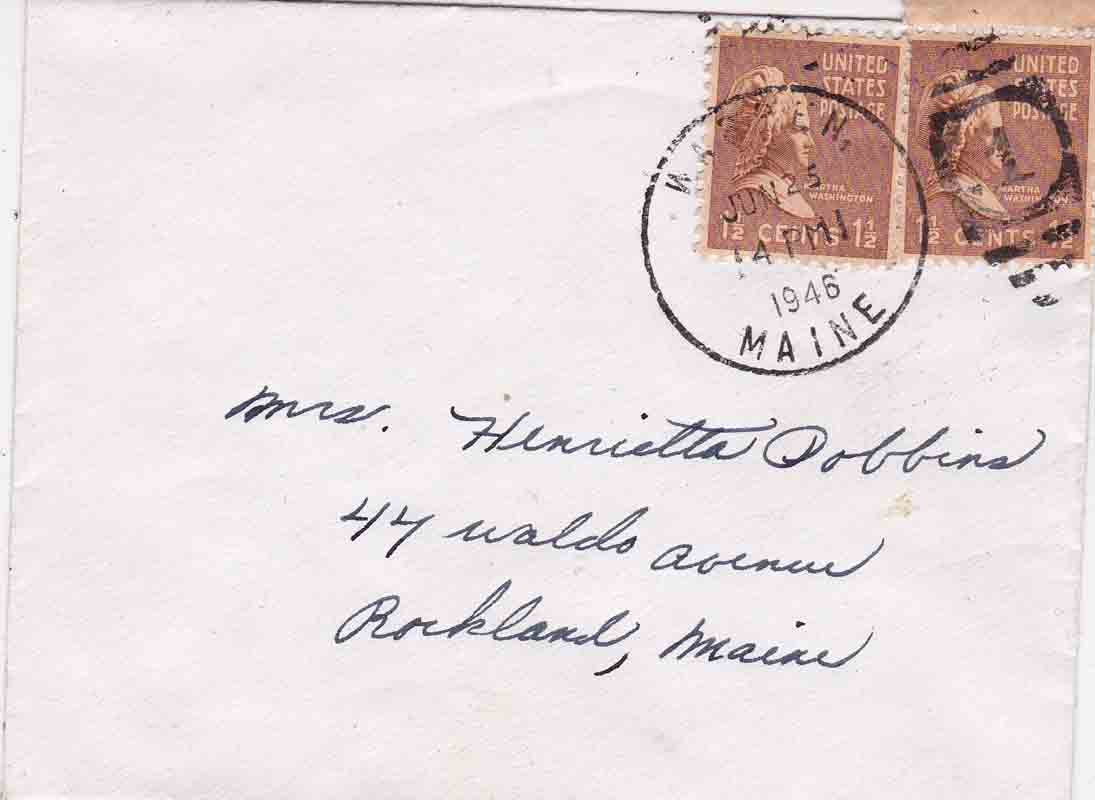 UNITED
STATES
POSTAGE
MARTHA
WASHINGTON
1½ CENTS 1½
UNITED
STATES
POSTAGE
MARTHA
WASHINGTON
1½ CENTS 1½
WARREN,
JUN 25
4 PM
1946
MAINE
1
Mrs. Henrietta Dobbins
44 Waldo Avenue
Rockland, Maine